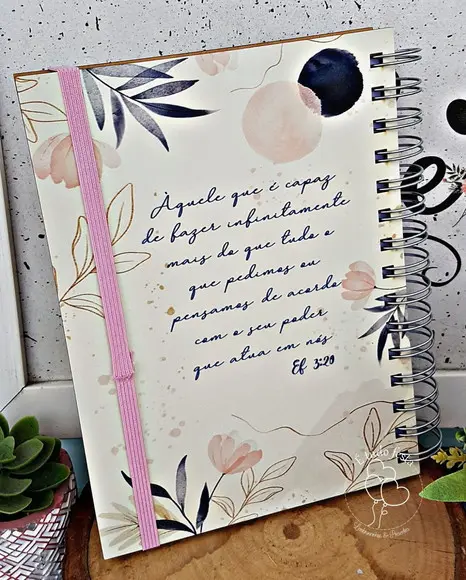 Àquele que é capaz
de fazer infinitamente
mais do que tudo o
que pedimos ou
pensamos de acordo
com o seu poder
que atua em nós
Ef 3:20